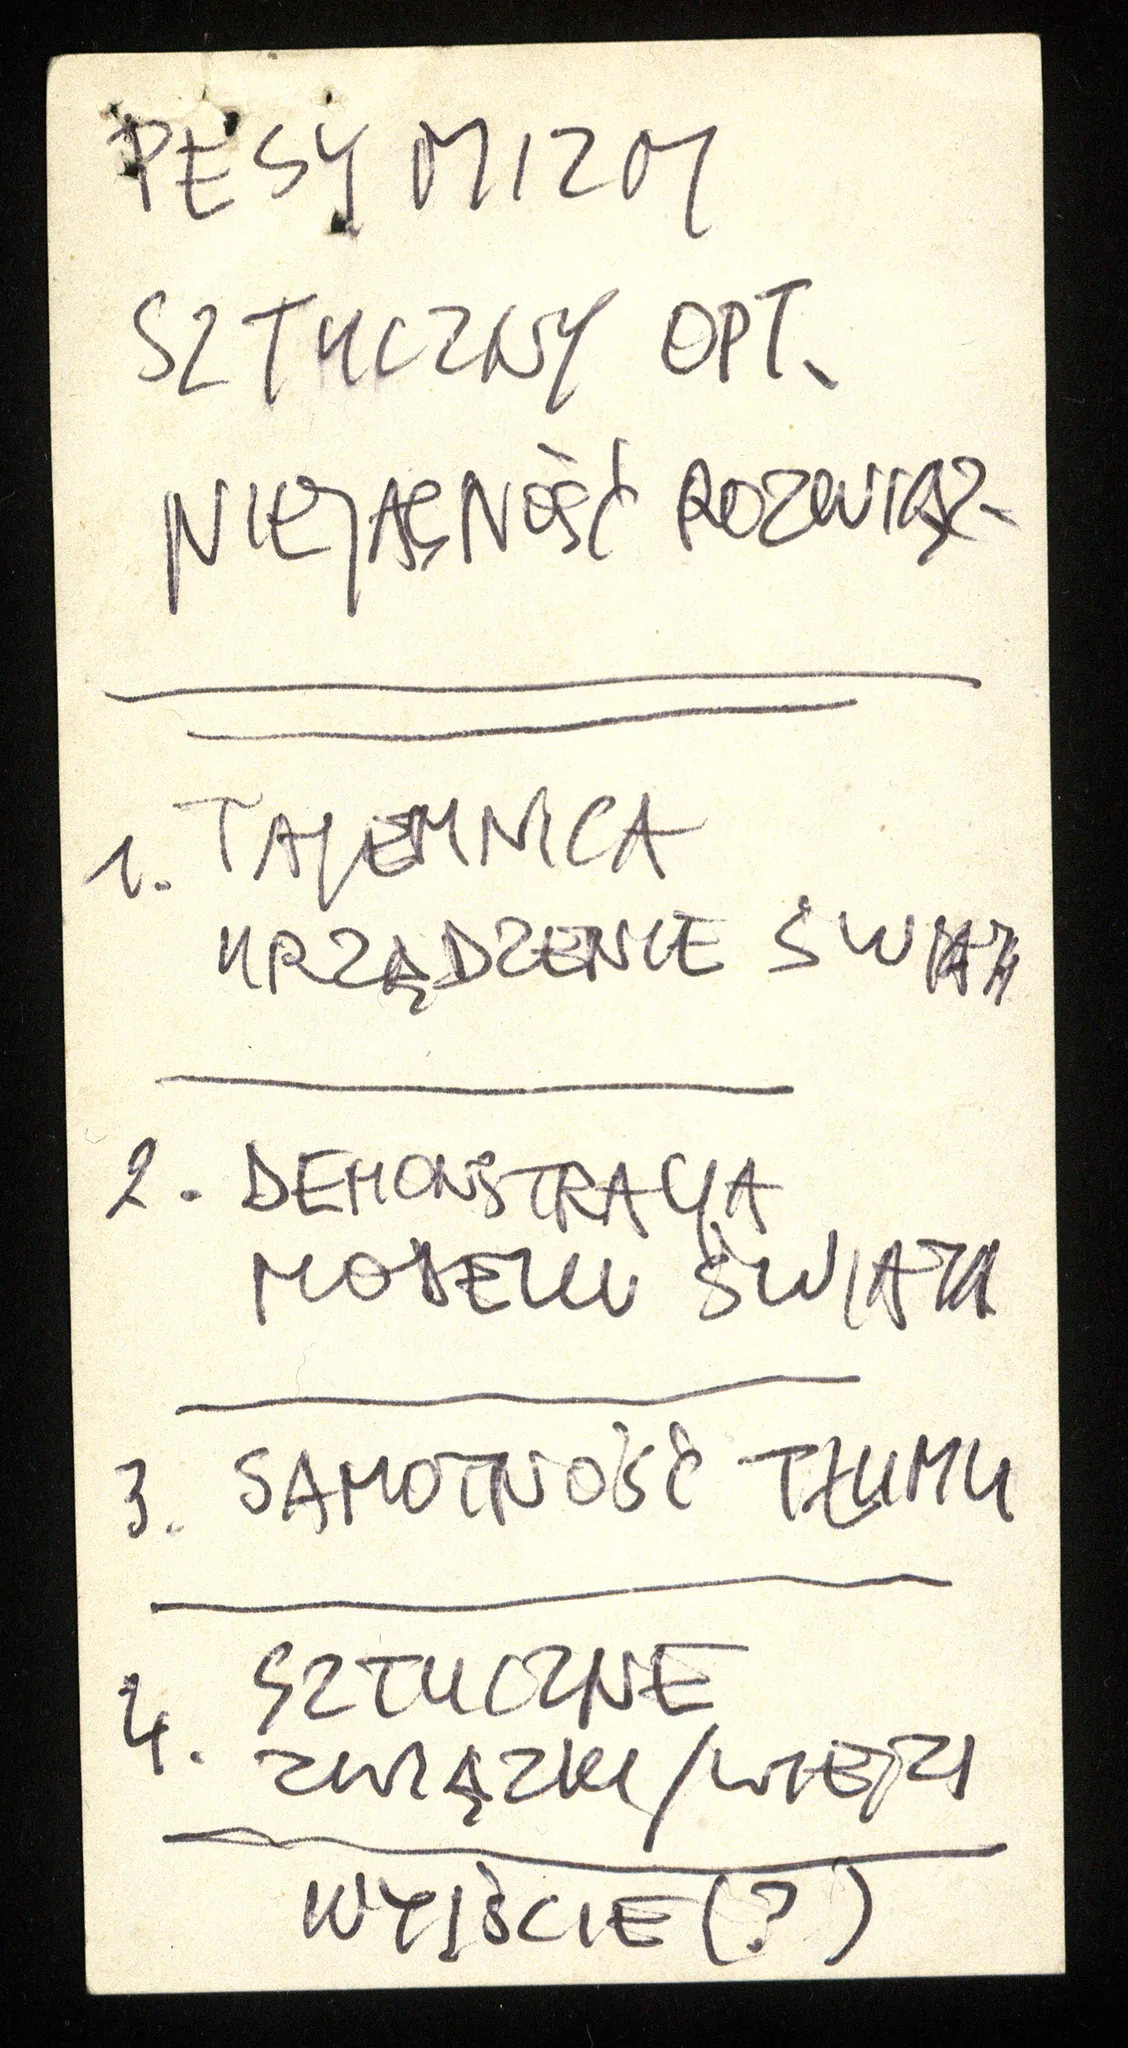 PESYMIZM
SZTUCZNY OPT.
NIEJASNOŚĆ ROZWIĄZ.
1. TAJEMNICA
URZĄDZENIE ŚWIATA
2. DEMONSTRACJA
MODELU ŚWIATA
3. SAMOTNOŚĆ TŁUMU
4. SZTUCZNE
ZWIĄZKI/WIĘZI
WYJŚCIE (?)